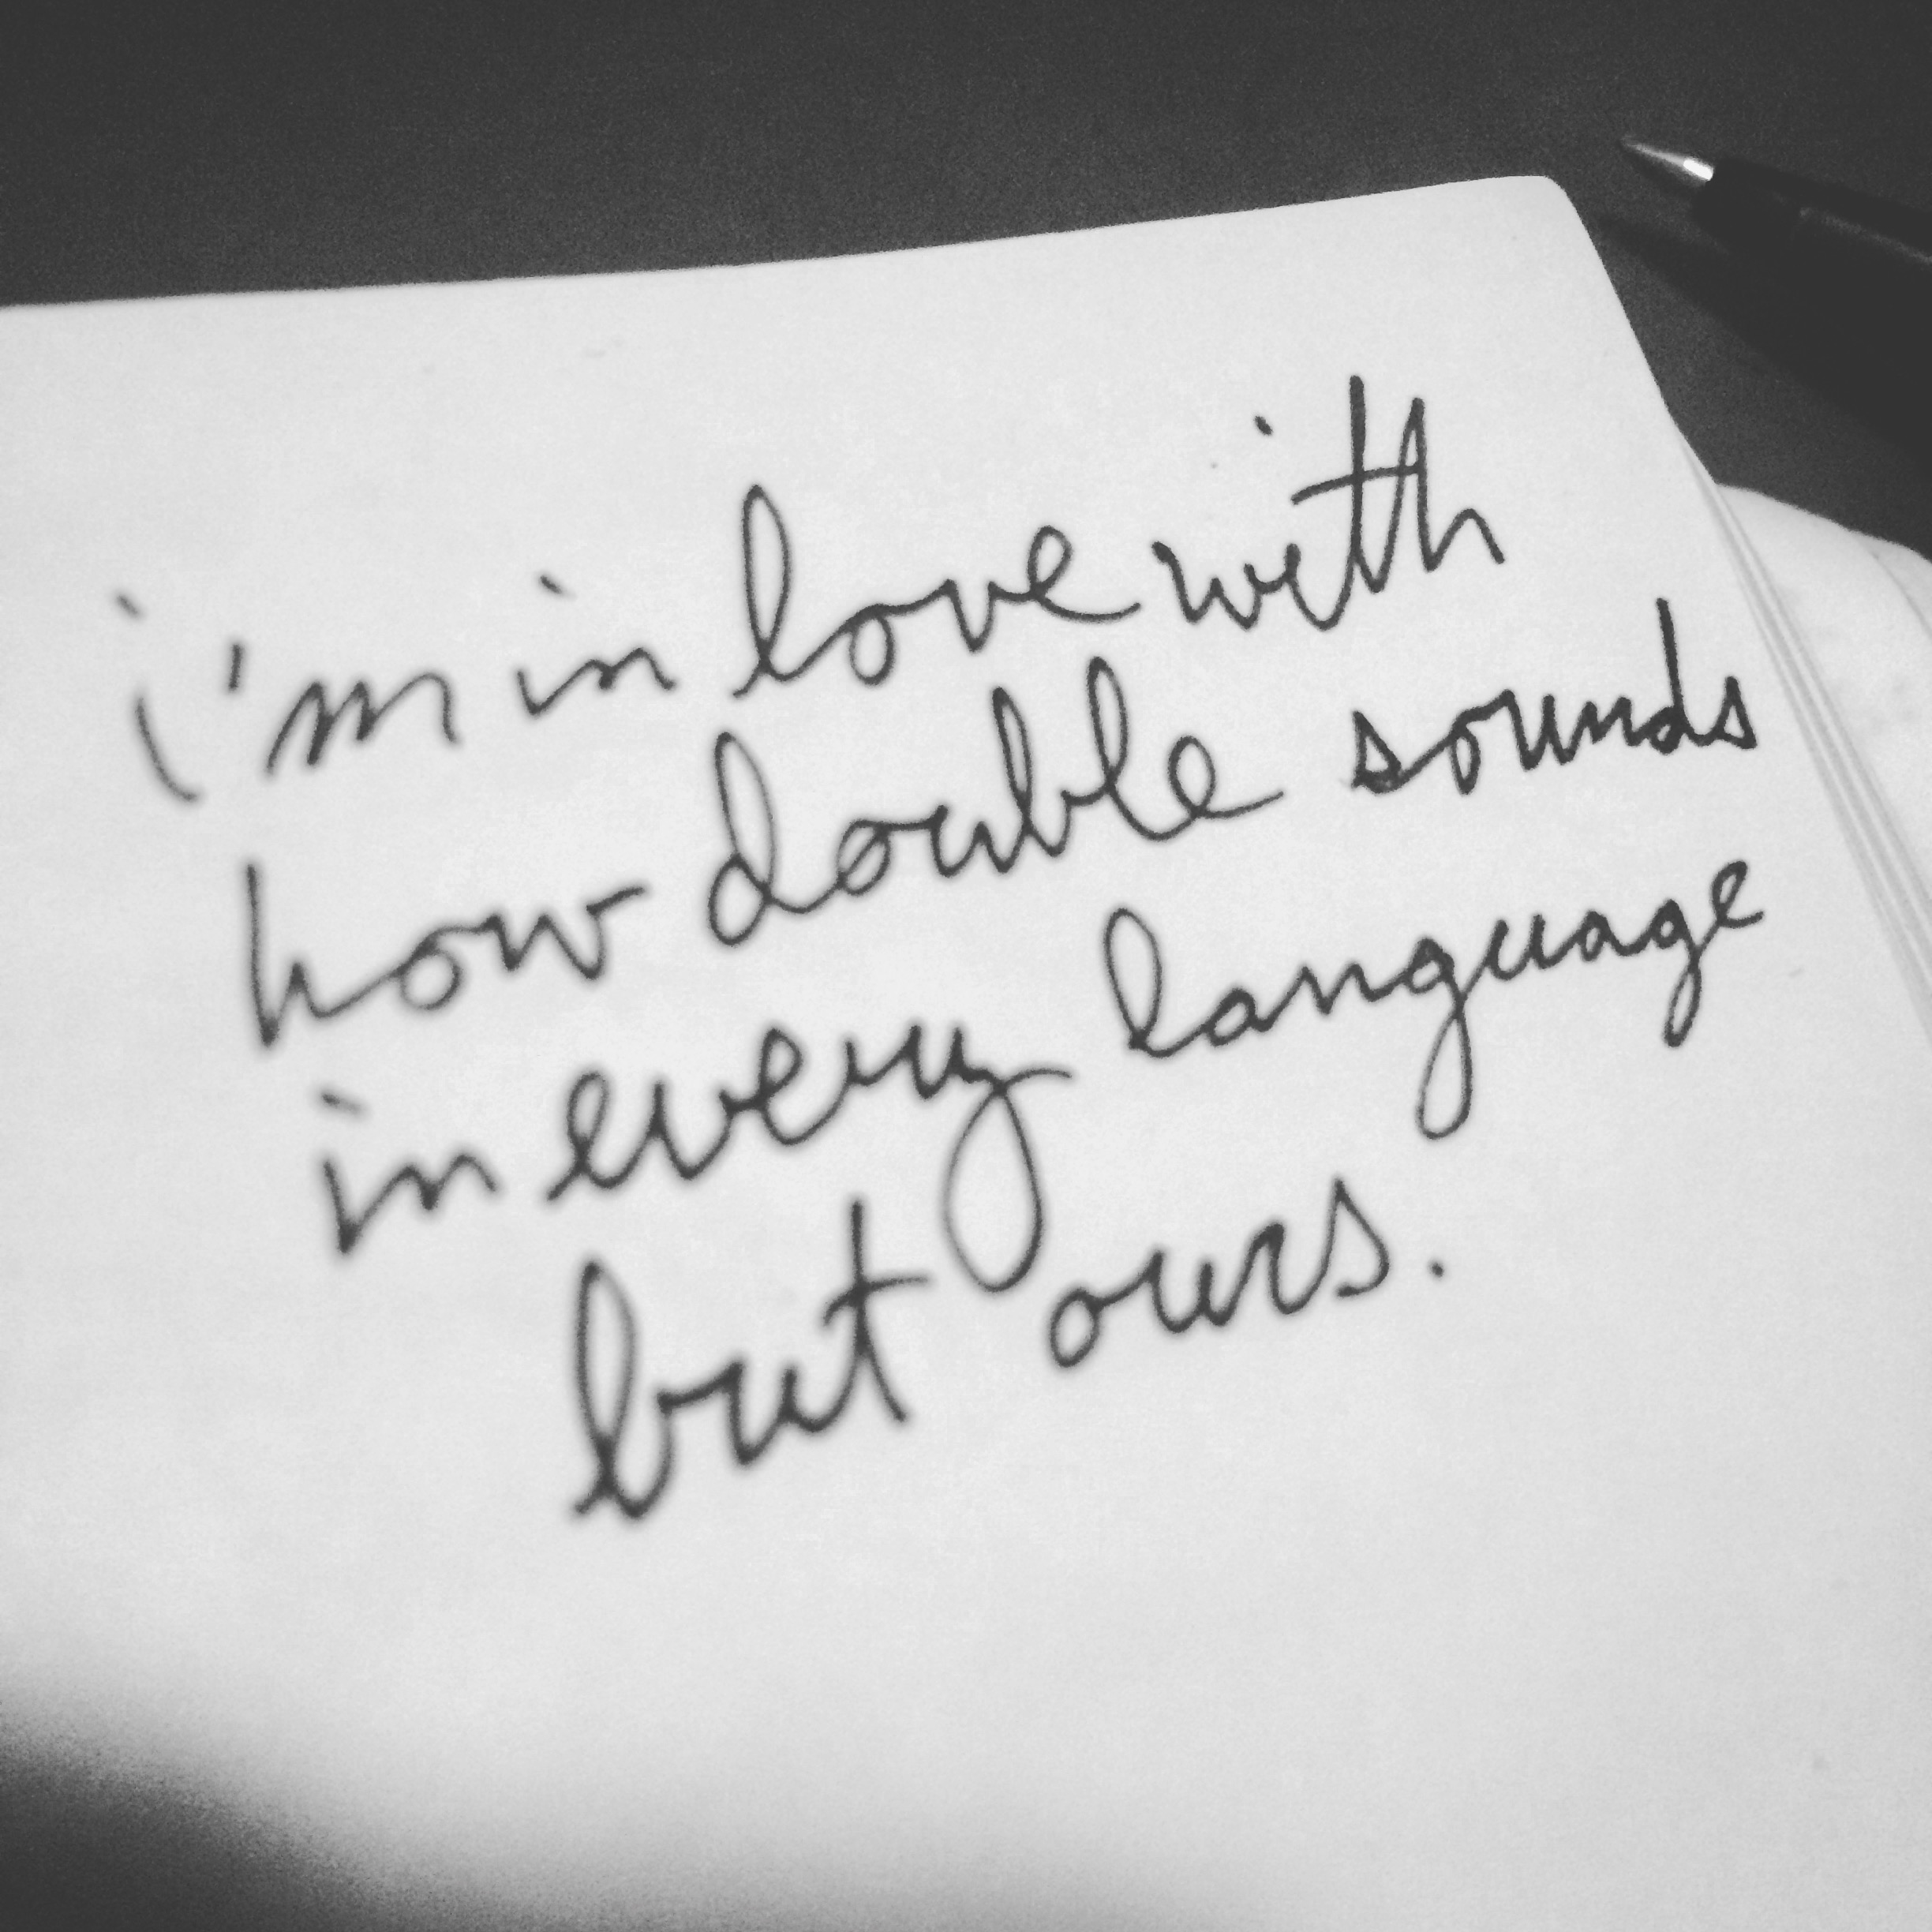 i'm in love with
how double sounds
in every language
but ours.